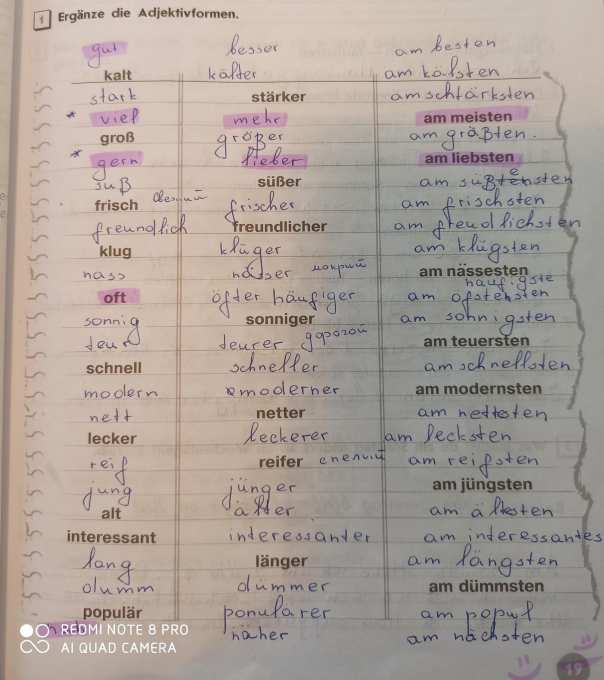 1 Ergänze die Adjektivformen.
gut besser am besten
kalt kälter am kälsten
stark stärker am schtärksten
* viel mehr am meisten
groß größer am größten.
* gern lieber am liebsten
süß süßer am süß e nsten
frisch свежий frischer am frischsten
freundlich freundlicher am freudlichsten
klug klüger am klügsten
nass nässer мокрий am nässesten
häufigste
oft öfter häufiger am öfstensten
sonnig sonniger am sonnigsten
teur teurer дорогой am teuersten
schnell schneller am schnellsten
modern moderner am modernsten
nett netter am nettesten
lecker leckerer am lecksten
reif reifer спелий am reifsten
jung jünger am jüngsten
alt älter am ältesten
interessant interessanter am interessantes
lang länger am längsten
dumm dümmer am dümmsten
populär popularer am popul
näher am nächsten
REDMI NOTE 8 PRO
AI QUAD CAMERA
19